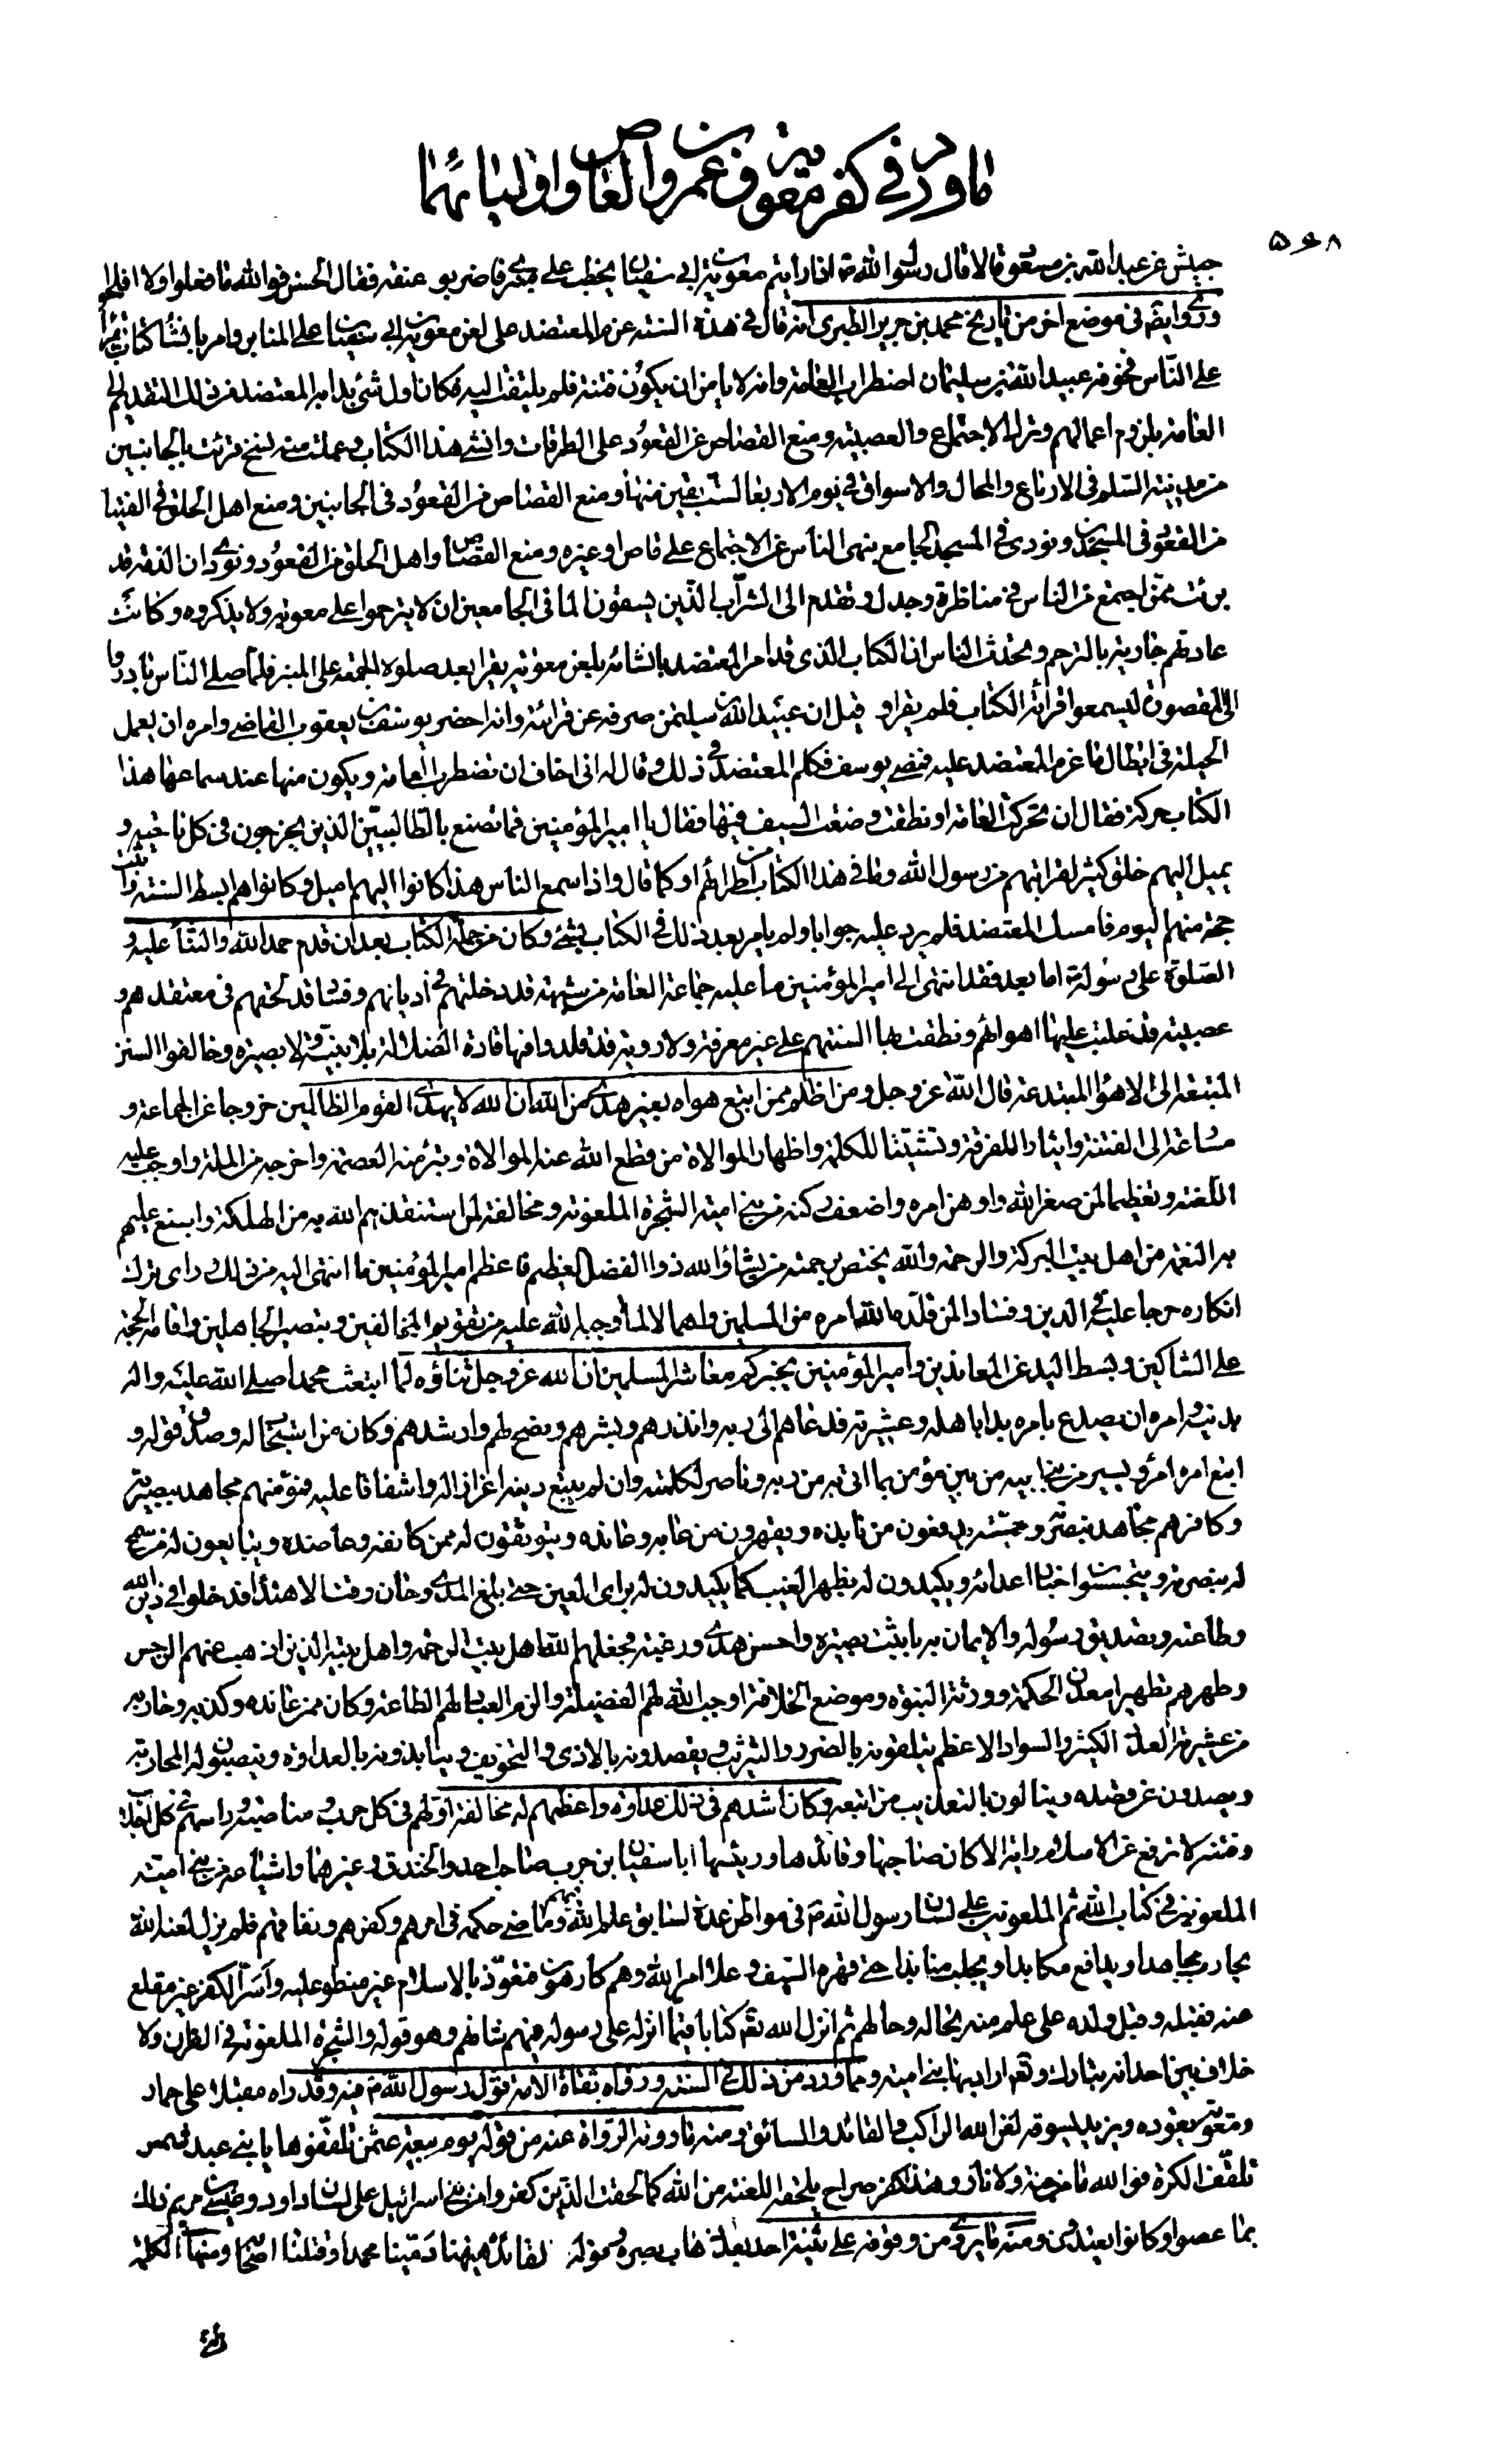 ما ورد في كفر معوية و عمرو بن العاص و اوليائهما
۵۶۸
حبيش عن عبد الله بن مسعود قالا قال رسول الله ص اذا رايتم معوية بن ابي سفيان يخطب على منبري فاضربوا عنقه فقال الحسن فوالله ما فعلوا ولا افلحوا
وروى ايضا في موضع اخر من تاريخ محمد بن جرير الطبري انه قال في هذه السنة عزم المعتضد على لعن معوية بن ابي سفيان على المنابر و امر بانشاء كتاب يقرأ
على الناس فخوفه عبيد الله بن سليمان اضطراب العامة وانه لا يامن ان يكون فتنة فلم يلتفت اليه فكان اول شئ بدا به المعتضد من ذلك التقدم الى
العامة بلزوم اعمالهم وترك الاجتماع والعصبية ومنع القصاص عن القعود على الطرقات وانشئ هذا الكتاب وعملت منه نسخ قرئت بالجانبين
من مدينة السلم في الارباع والمحال والاسواق في يوم الاربعا لست بقين منها ومنع القصاص من القعود في الجانبين ومنع اهل الحلق في الفتيا
من القعود في المسجدين ونودى في المسجد الجامع بنهى الناس عن الاجتماع على قاص او غيره ومنع القصاص واهل الحلق من القعود ونودي ان الذمة قد
برئت ممن اجتمع من الناس في مناظرة وجدل وتقدم الى الشراب الذين يسقون الما في الجامعين ان لا يترحموا على معوية ولا يذكروه وكانت
عادتهم جارية بالترحم وتحدث الناس ان الكتاب الذي قد امر المعتضد بانشائه بلعن معوية يقرا بعد صلوة الجمعة على المنبر فلما صلى الناس بادروا
الى المقصورة ليسمعوا قرائة الكتاب فلم يقرا و قيل ان عبيد الله بن سليمن صرفه عن قرائته وانه احضر يوسف بن يعقوب القاضى وامره ان يعمل
الحيلة في ابطال ما عزم المعتضد عليه فمضى يوسف فكلم المعتضد في ذلك وقال له انى اخاف ان تضطرب العامة ويكون منها عند سماعها هذا
الكتاب حركة فقال ان تحركت العامة او نطقت وضعت السيف فيها فقال يا امير المؤمنين فما تصنع بالطالبيين الذين يخرجون في كل ناحية و
يميل اليهم خلق كثير لقرابتهم من رسول الله وما في هذا الكتاب من اطرائهم او كما قال واذا سمع الناس هذا كانوا اليهم اميل وكانوا هم ابسط السنة واثبت
حجة منهم اليوم فامسك المعتضد فلم يرد عليه جوابا ولم يامر بعد ذلك في الكتاب بشئ وكان من جملة الكتاب بعد ان قدم حمد الله والثنا عليه و
الصلوة على رسوله اما بعد فقد انتهى الى امير المؤمنين ما عليه جماعة العامة من شبهة قد دخلتهم في اديانهم وفساد قد لحقهم في معتقدهم و
عصبية قد غلبت عليها اهوائهم ونطقت بها السنتهم على غير معرفة ولا روية قد قلدوا فيها قادة الضلالة بلا بينة ولا بصيرة وخالفوا السنن
المتبعة الى الاهوا المبتدعة قال الله عز وجل ومن اظلم ممن اتبع هواه بغير هدى من الله ان الله لا يهدى القوم الظالمين خروجا عن الجماعة و
مسارعة الى الفتنة وايثارا للفرقة وتشتيتا للكلمة واظهار الموالاة من قطع الله عنه الموالاة وبتر منه العصمة واخرجه من الملة واوجب عليه
اللعنة وتعظيما لمن صغر الله واوهن امره واضعف ركنه من بني امية الشجرة الملعونة ومخالفة لمن استنقذهم الله به من الهلكة واسبغ عليهم
به النعمة من اهل بيت البركة والرحمة والله يختص برحمته من يشاء والله ذو الفضل العظيم فاعظم امير المؤمنين ما انتهى اليه من ذلك وراى ترك
انكاره حرجا عليه في الدين وفسادا لمن قلده الله امره من المسلمين واهمالا لما اوجبه الله عليه من تقويم المخالفين وتبصير الجاهلين واقامة الحجة
على الشاكين وبسط اليد عن المعاندين وامير المؤمنين يخبركم معاشر المسلمين ان الله عز وجل ثناؤه لما ابتعث محمدا صلى الله عليه واله
بدينه وامره ان يصدع بامره بدا باهله وعشيرته فدعاهم الى ربه وانذرهم وبشرهم ونصح لهم وارشدهم وكان من استجاب له وصدق قوله و
اتبع امره امرؤ يسير من بني ابيه من بين مؤمن بما اتى به من ربه وناصر لكلمته وان لم يتبع دينه اعزازا له واشفاقا عليه فمؤمنهم مجاهد ببصيرته
وكافرهم مجاهد بنصرته وحميته يدفعون من نابذه ويقهرون من عابه وعانده ويتوثقون له ممن كانفه وعاضده ويبايعون له من سمح
له بنصرته ويتجسسون اخبار اعدائه ويكيدون له بظهر الغيب كما يكيدون له براى العين حتى بلغ المدى وحان وقت الاهتداء فدخلوا في دين الله
وطاعته وتصديق رسوله والايمان به باثبت بصيرة واحسن هدى ورغبة فجعلهم الله اهل بيت الرحمة واهل بيته الذين اذهب عنهم الرجس
وطهرهم تطهيرا معدن الحكمة وورثة النبوة وموضع الخلافة اوجب الله لهم الفضيلة والزم العباد لهم الطاعة وكان ممن عانده وكذبه وحاربه
من عشيرته العدد الكثير والسواد الاعظم يتلقونه بالضرر والتثريب ويقصدونه بالاذى والتخويف وينابذونه بالعداوة وينصبون له المحاربة
ويصدون عن قصده وينالون بالتعذيب من اتبعه وكان اشدهم في ذلك عداوة واعظمهم له مخالفة اولهم في كل حرب ومناصبة وراسهم في كل اجلاب
وفتنة لا ترفع عن الاسلام راية الا كان صاحبها وقائدها ورئيسها ابا سفيان بن حرب صاحب احد والخندق وغيرهما واشياعه من بني امية
الملعونين في كتاب الله ثم الملعونين على لسان رسول الله ص في مواطن عدة لسابق علم الله فيهم وماضى حكمه في امرهم وكفرهم ونفاقهم فلم يزل لعنه الله
يحارب مجاهدا ويدافع مكابدا ويجلب منابذا حتى قهره السيف وعلا امر الله وهم كارهون فتعوذ بالاسلام غير منطو عليه واسر الكفر غير مقلع
عنه فقبله وقبل ولده على علم منه بحاله وحالهم ثم انزل الله تعالى كتابا فيما انزله على رسوله فيهم شانهم وهو قوله والشجرة الملعونة في القران ولا
خلاف بين احد انه تبارك وتعالى اراد بها بني امية ومما ورد من ذلك في السنة ورواه ثقاة الامة قول رسول الله ص فيه وقد راه مقبلا على حمار
ومعوية يقوده ويزيد يسوقه لعن الله الراكب والقائد والسائق ومنه ما روته الرواة عنه من قوله يوم بيعة عثمن تلقفوها يا بني عبد شمس
تلقف الكرة فوالله ما من جنة ولا نار وهذا كفر صراح يلحقه اللعنة من الله كما لحقت الذين كفروا من بني اسرائيل على لسان داود وعيسى بن مريم ذلك
بما عصوا وكانوا يعتدون ومنه ما يروى من وقوفه على ثنية احد بعد ذهاب بصره وقوله لقائده هيهنا رمينا محمدا وقتلنا اصحابه ومنها الكلمة